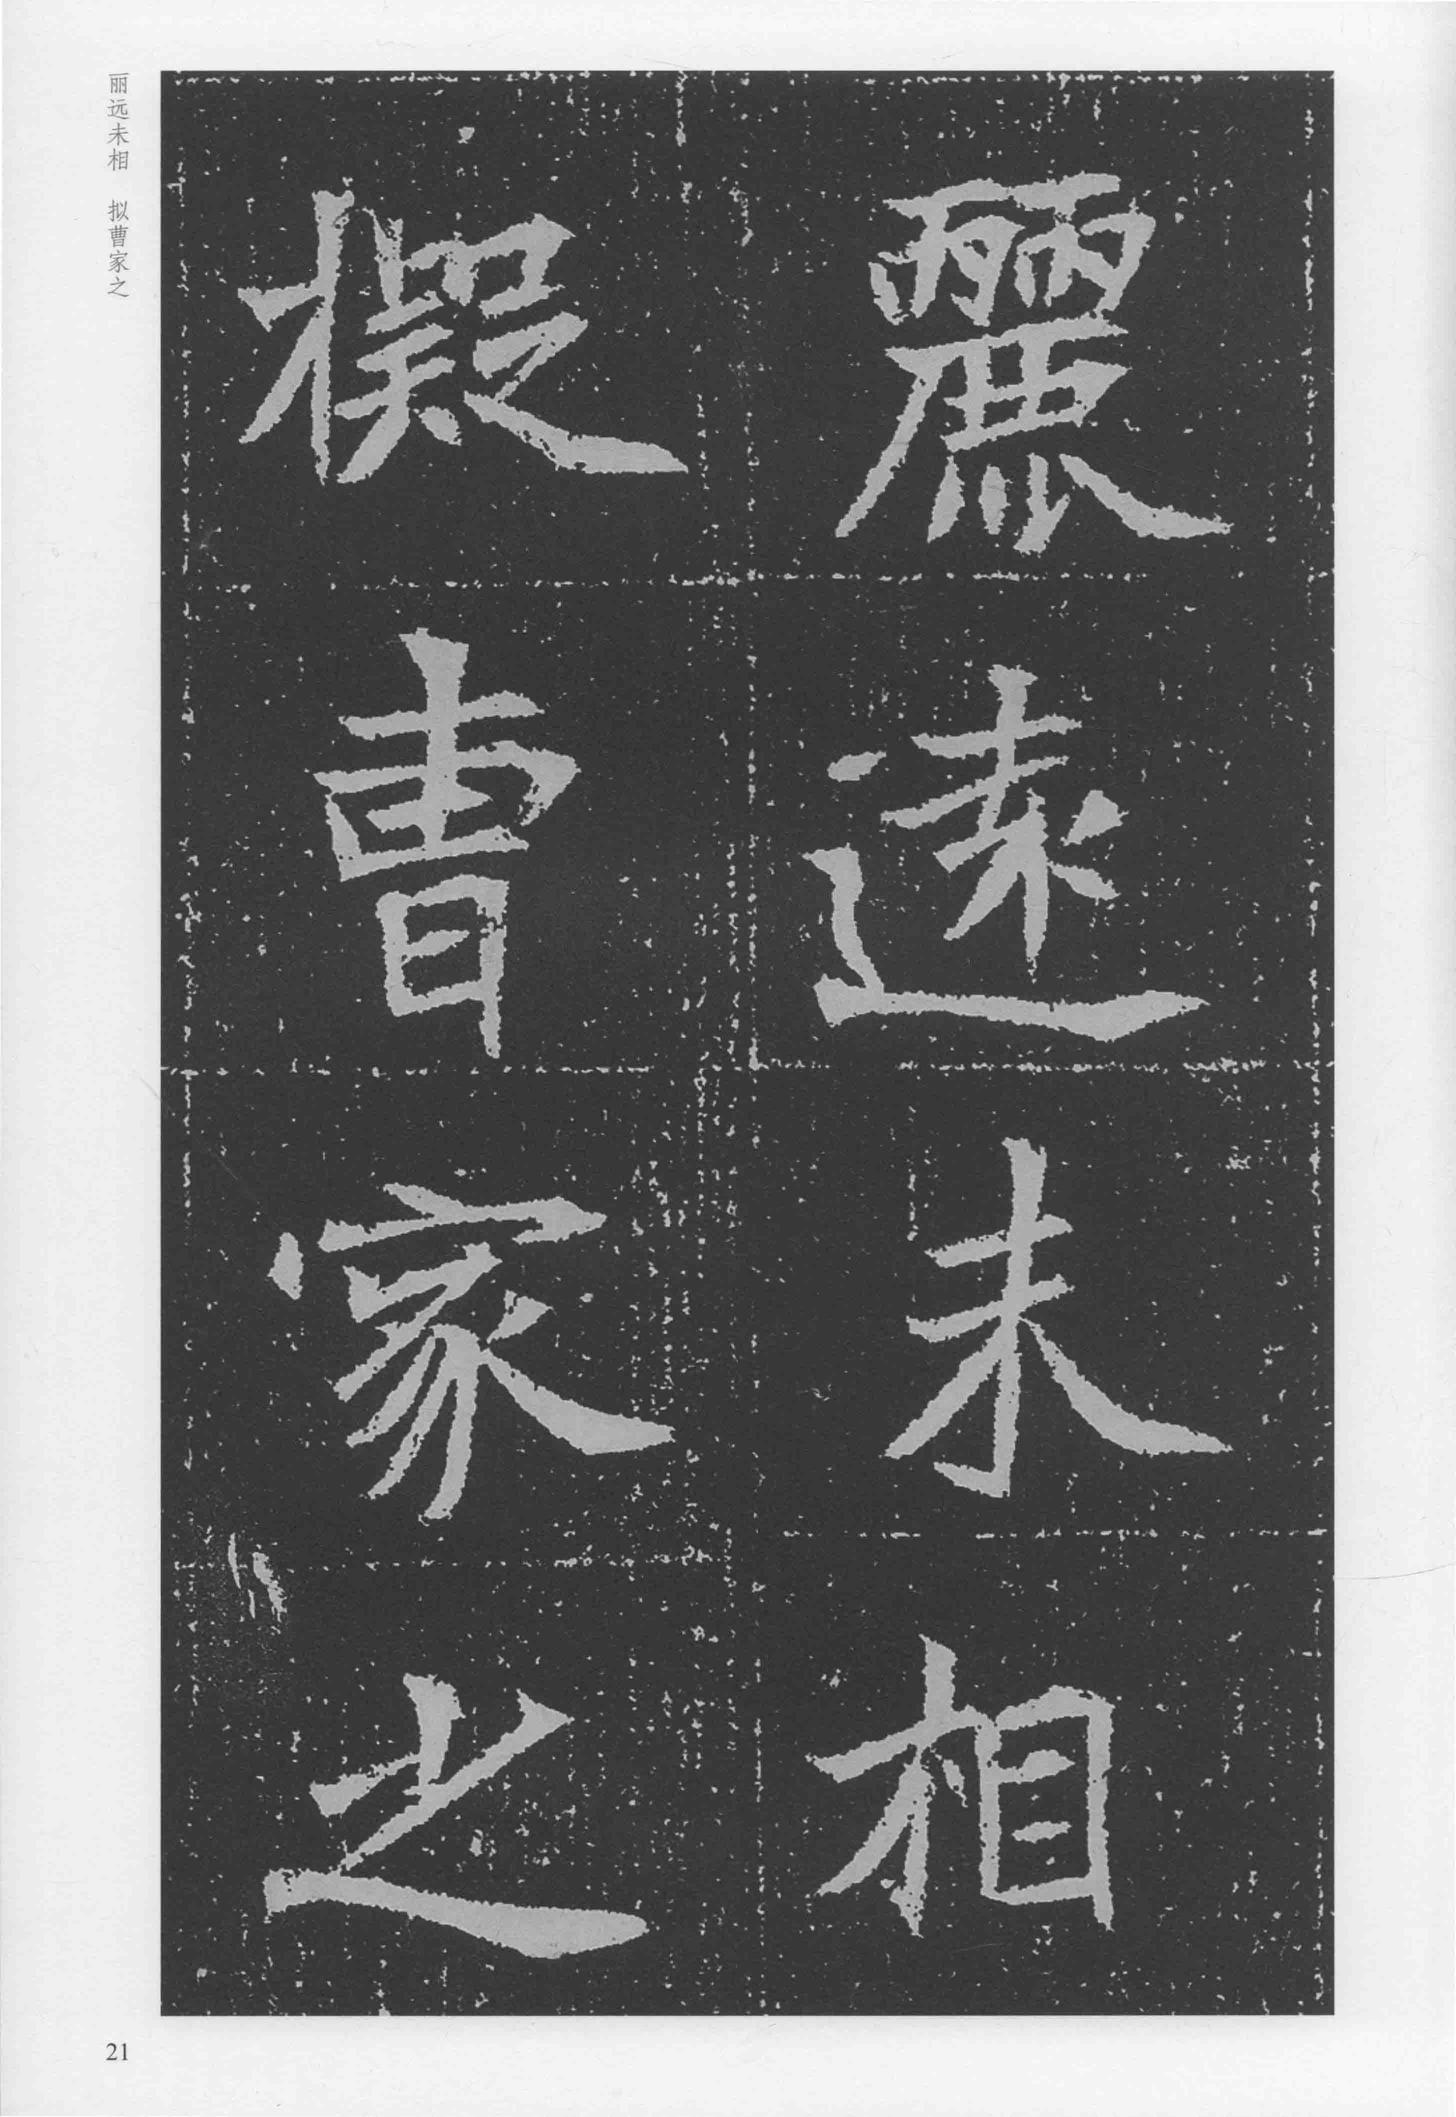 麗遠未相
擬曹家之
丽远未相　拟曹家之
21